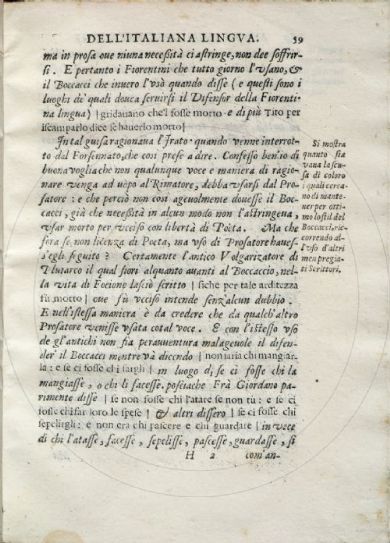 DELL'ITALIANA LINGVA. 59
ma in prosa oue niuna necessità ci astringe, non dee soffrir-
si. E pertanto i Fiorentini che tutto giorno l'vsano, &
il Boccacci che inuero l'vsò quando disse (e questi sono i
luoghi de' quali douea seruirsi il Difensor della Fiorenti
na lingua) | gridauano che'l fosse morto e di più Tito per
iscamparlo dice se hauerlo morto |
In tal guisa ragionaua l'Irato quando venne interrot-
to dal Forsennato, che così prese a dire. Confesso ben'io di
buona voglia che non qualunque voce e maniera di ragio-
nare venga ad uopo al Rimatore, debba vsarsi dal Pro-
satore: e che perciò non così ageuolmente douesse il Boc-
cacci, già che necessità in alcun modo non l'astringeua,
vsar morto per vcciso con libertà di Poeta. Ma che
fora se non licenza di Poeta, ma vso di Prosatore haues-
s'egli seguito? Certamente l'antico Volgarizatore di
Plutarco il qual fiorì alquanto auanti al Boccaccio, nel-
la vita di Focione lasciò scritto | siche per tale accidentezza
fù morto | cue fù vcciso intende senz'alcun dubbio.
E nell'istessa maniera è da credere che da qualch'altro
Prosatore venisse vsata cotal voce. E con l'istesso vso
de gl'antichi non fia perauuentura malageuole il difen-
der' il Boccacci mentre và dicendo | non iaria chi mangiar-
la: e se ci fosse chi fargli | in luogo di se ci fosse chi la
mangiasse, o chi li facesse. posciache Frà Giordano pa-
rimente disse | se non fosse chi l'atare se non tu: e se ci
fosse chi far loro le spese | & altri dissero | se ci fosse chi
sepelirgli: e non era chi pascere e chi guardare | in vece
di chi l'atasse, facesse, sepelisse, pascesse, guardasse, si
H 2 com'an-
Si mostra
quanto sia
vana la scu-
sa di coloro
i quali cerca
no di mante-
uer per otti-
mo lo stil del
Boccacci, ri-
correndo al-
l'vso d'altri
men pregia-
ti Scrittori.